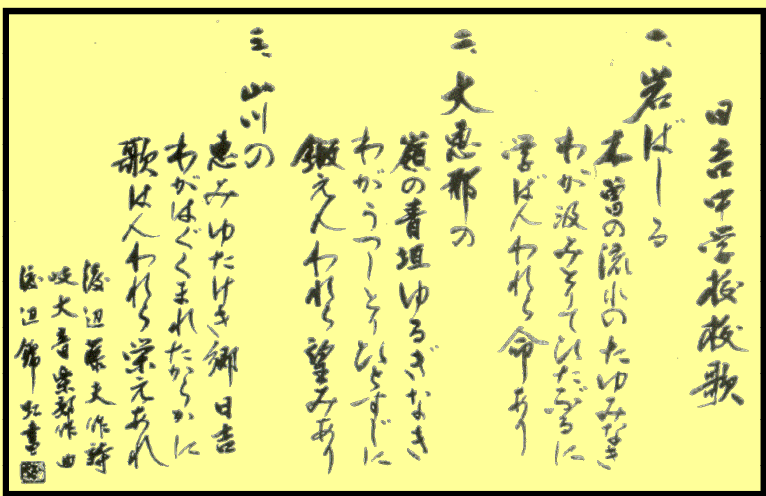 日吉中学校校歌
一、岩ばしる
木曽の流れのたゆみなき
わが汲みとりてひたぶるに
学ばんわれら命あり
二、大恵那の
嶺の青垣ゆるぎなき
わがうつしとりひとすじに
鍛えんわれら望みあり
三、山川の
恵みゆたけき郷日吉
わがはぐくまれたからかに
歌はんわれら栄えあれ
渡辺 夫作詩
岐大音楽部作曲
渡辺錦 書